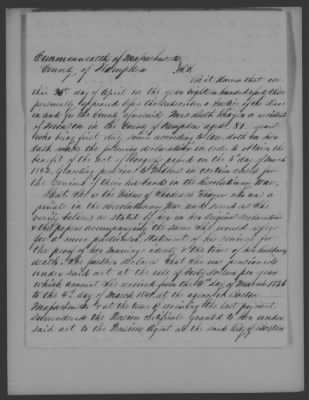 Commonwealth of Massachusetts
County of Hampden SS.
Be it Known that on
this day of April in the year eighteen hundred
personally appeared before the subscriber a Justice of the Peace
in and for the County aforesaid Mrs. a resident
of in the County of Hampden aged 81 years
who being first duly sworn according to law doth on her
oath make the following declaration in order to obtain the
benefit of the Act of Congress passed on the 3d day of March
1843, granting pensions to Widows in certain cases for
the service of their husbands in the Revolutionary War.
That she is the Widow of who was a
private in the Revolutionary War and served as she
verily believes as stated by her in her Original declaration
& the papers accompanying the same She would refer
for a more particular Statement of his service &
the proof of her marriage and of the time of her husbands
death. She further declares that she was pensioned
under said act at the rate of dollars per year
which amount she received from the 4th day of March 1836
to the 4th day of March 1841 at the agency at Boston
Massachusetts & at the time of receiving the last payment
surrendered the Pension Certificate granted to her under
said act to the Pension Agent at the said City of Boston